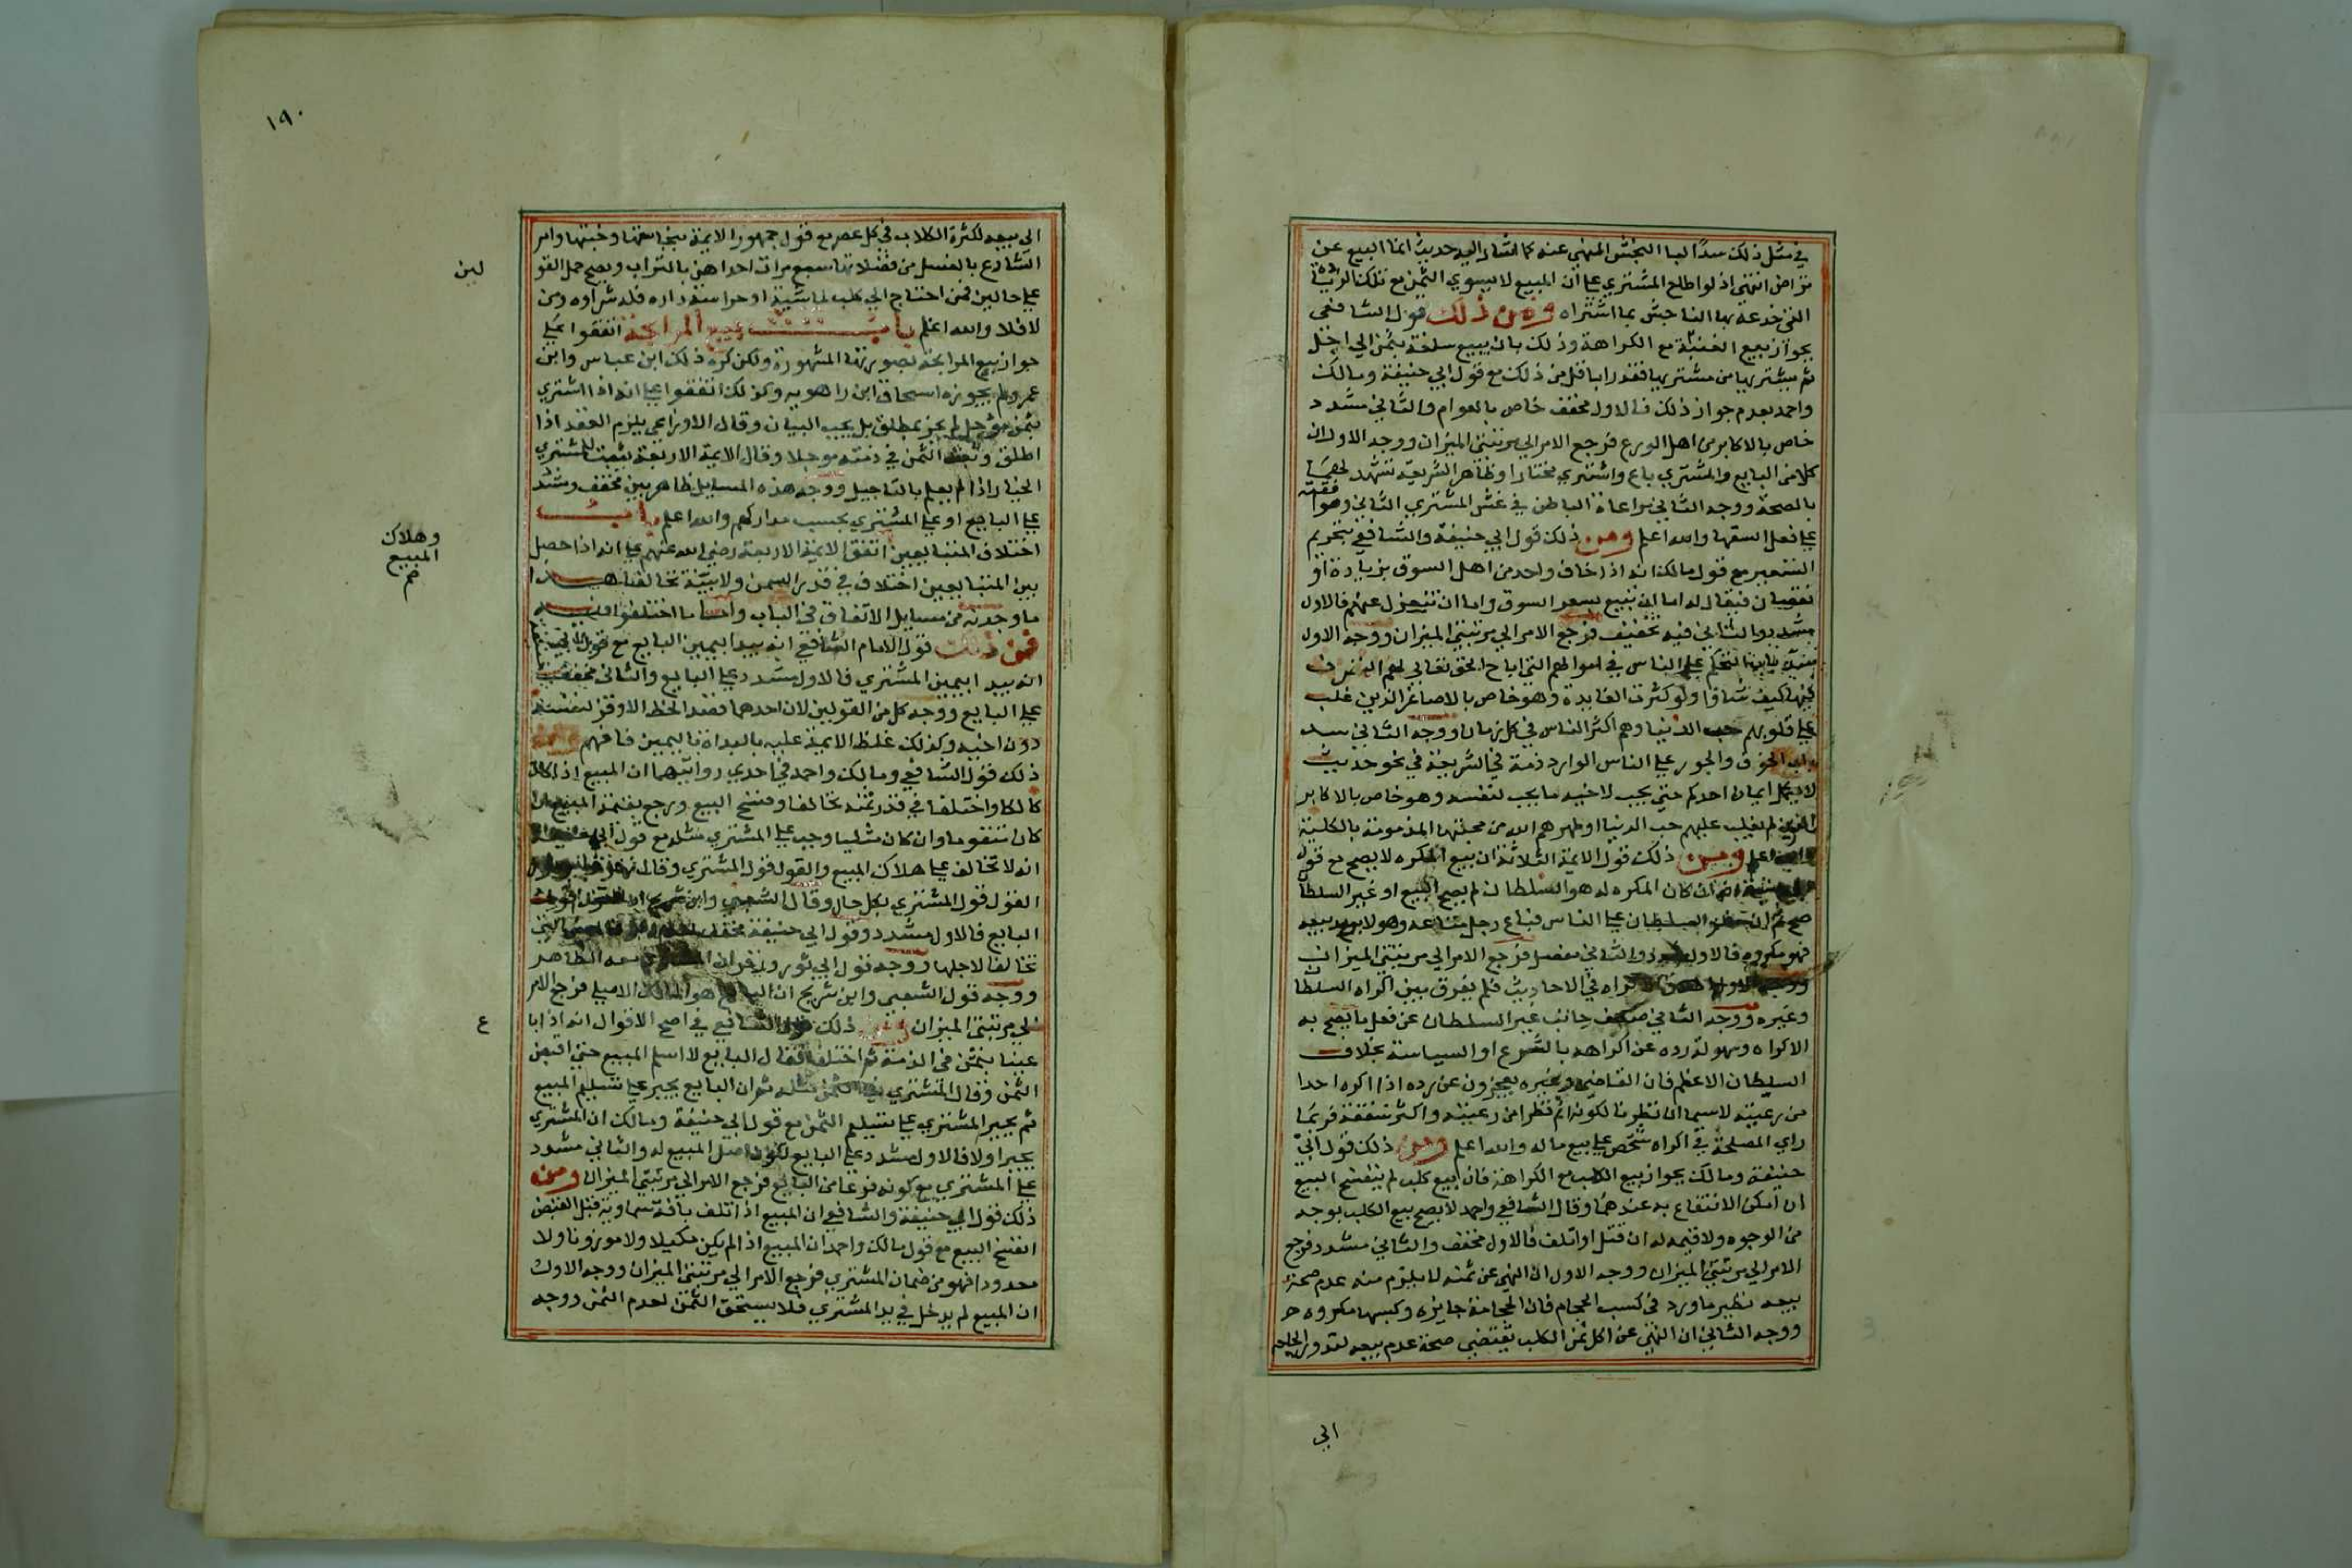 في مثل ذلك سدا لباب النجش المنهي عنه كما اشار اليه حديث انما البيع عن
تراض انتهى اذ لو اطلع المشتري علي ان المبيع لا يسوي الثمن مع تلك الزيادة
التي خدعه بها الناجش بما اشتراه ومن ذلك قول الشافعي
بجواز بيع العينة مع الكراهة وذلك بان يبيع سلعة بثمن الي اجل
ثم يشتريها من مشتريها نقدا باقل من ذلك مع قول ابي حنيفة ومالك
واحمد بعدم جواز ذلك فالاول مخفف خاص بالعوام والثاني مشدد
خاص بالاكابر من اهل الورع فرجع الامر الي مرتبتي الميزان ووجه الاول ان
كلا من البايع والمشتري باع واشتري مختارا وظاهر الشريعة تشهد لهما
بالصحة ووجه الثاني مراعاة الباطن في غش المشتري الثاني وموافقته
علي فعل السفها والله اعلم ومن ذلك قول ابي حنيفة والشافعي بتحريم
التسعير مع قول مالك انه اذا خالف واحد من اهل السوق بزيادة او
نقصان فيقال له اما ان تبيع بسعر السوق واما ان تنعزل عنهم فالاول
مشدد والثاني فيه تخفيف فرجع الامر الي مرتبتي الميزان ووجه الاول
التحكم علي الناس في اموالهم التي اباح الحق تعالي لهم التصرف
فيها كيف شاؤا ولو كثرت الفايدة وهو خاص بالاصاغر الذين غلب
علي قلوبهم حب الدنيا وهم اكثر الناس في كل زمان ووجه الثاني سد
باب الجور علي الناس الوارد ذمه في الشريعة في نحو حديث
لا يكمل ايمان احدكم حتي يحب لاخيه ما يحب لنفسه وهو خاص بالاكابر
الذين لم يغلب عليهم حب الدنيا او طهرهم الله من محبتها المذمومة بالكلية
والله اعلم ومن ذلك قول الايمة الثلاثة ان بيع المكره لا يصح مع قول
ابي حنيفة انه ان كان المكره له هو السلطان لم يصح البيع او غير السلطان
صح السلطان علي الناس فباع رجل متاعه وهو لا يريد بيعه
فهو مكروه فالاول مشدد والثاني مفصل فرجع الامر الي مرتبتي الميزان
ووجه الاول اطلاق الاكراه في الاحاديث فلم يفرق بين اكراه السلطان
وغيره ووجه الثاني ضعف جانب غير السلطان عن فعل ما يصح به
الاكراه وسهولة رده عن اكراهه بالشرع او السياسة بخلاف
السلطان الاعظم فان القاضي وغيره يعجزون عن رده اذا اكره احدا
من رعيته لاسيما ان نظرنا لكونه اتم نظرا من رعيته واكثر شفقة فربما
راي المصلحة في اكراه شخص علي بيع ماله والله اعلم ومن ذلك قول ابي
حنيفة ومالك بجواز بيع الكلب مع الكراهة فان بيع كلب لم ينفسخ البيع
ان امكن الانتفاع به عندهما وقال الشافعي واحمد لا يصح بيع الكلب بوجه
من الوجوه ولا قيمة له ان قتل او اتلف فالاول مخفف والثاني مشدد فرجع
الامر الي مرتبتي الميزان ووجه الاول ان النهي عن ثمنه لا يلزم منه عدم صحة
بيعه نظير ما ورد في كسب الحجام فان الحجامة جايزة وكسبها مكروه
ووجه الثاني ان النهي عن اكل ثمن الكلب يقتضي صحة عدم بيعه لقدور الحاجة
الي
١٩٠
الي بيعه لكثرة الكلاب في كل عصر مع قول جمهور الايمة بنجاستها وخبثها وامر
الشارع بالغسل من فضلاتها سبع مرات احداهن بالتراب ويصح حمل القو
لين
علي حالين فمن احتاج الي كلب لماشية او حراسة داره فله شراوه ومن
لا فلا والله اعلم باب بيع المرابحة اتفقوا علي
جواز بيع المرابحة بصورتها المشهورة ولكن كره ذلك ابن عباس وابن
عمر ولم يجوزه اسحاق ابن راهويه وكذلك اتفقوا علي انه اذا اشتري
بثمن موجل لم يجز بمطلق بل يجب البيان وقال الاوزاعي يلزم العقد اذا
اطلق ويثبت الثمن في ذمته موجلا وقال الايمة الاربعة يثبت للمشتري
الخيار اذا لم يعلم بالتاجيل ووجه هذه المسايل ظاهر بين مخفف ومشدد
علي البايع او علي المشتري بحسب مداركهم والله اعلم باب
اختلاف المتبايعين اتفق الايمة الاربعة رضي الله عنهم علي انه اذا حصل
بين المتبايعين اختلاف في قدر الثمن ولا بينة تحالفا هذا
ما وجدته من مسايل الاتفاق في الباب واما ما اختلفوا فيه
فمن ذلك قول الامام الشافعي انه يبدا بيمين البايع مع قول ابي حنيفة
انه يبدا بيمين المشتري فالاول مشدد علي البايع والثاني مخفف
علي البايع ووجه كل من القولين لان احدهما قصد الحظ الاوفر لنفسه
دون اخيه وكذلك غلظ الايمة عليه بالبداة باليمين فافهم ومن
ذلك قول الشافعي ومالك واحمد في احدي روايتيهما ان المبيع اذا كان
هالكا واختلفا في قدر ثمنه تحالفا وفسخ البيع ورجع بقيمة المبيع ان
كان متقوما وان كان مثليا وجب علي المشتري مثله مع قول ابي حنيفة
انه لا تحالف علي هلاك المبيع والقول قول المشتري وقال زفر وابو ثور
وهلاك
المبيع
صح
القول قول المشتري بكل حال وقال الشعبي وابن شريح ان القول قول
البايع فالاول مشدد وقول ابي حنيفة مخفف
تحالفا لاجلها ووجه قول ابي ثور وزفر ان المشتري معه الظاهر
ووجه قول الشعبي وابن شريح ان البايع هو المالك الاصلي فرجع الامر
الي مرتبتي الميزان ومن ذلك قول الشافعي في اصح الاقوال انه اذا با
ع
عينا بثمن في الذمة ثم اختلفا فقال البايع لا اسلم المبيع حتي اقبض
الثمن وقال المشتري في الثمن مثله ان البايع يجبر علي تسليم المبيع
ثم يجبر المشتري علي تسليم الثمن مع قول ابي حنيفة ومالك ان المشتري
يجبر اولا فالاول مشدد علي البايع لكون اصل المبيع له والثاني مشدد
علي المشتري مع كونه فرعا من البايع فرجع الامر الي مرتبتي الميزان ومن
ذلك قول ابي حنيفة والشافعي ان المبيع اذا تلف بافة سماوية قبل القبض
انفسخ البيع مع قول مالك واحمد ان المبيع اذا لم يكن مكيلا ولا موزونا ولا
معدودا فهو من ضمان المشتري فرجع الامر الي مرتبتي الميزان ووجه الاول
ان المبيع لم يدخل في يد المشتري فلا يستحق الثمن لعدم الثمن ووجه